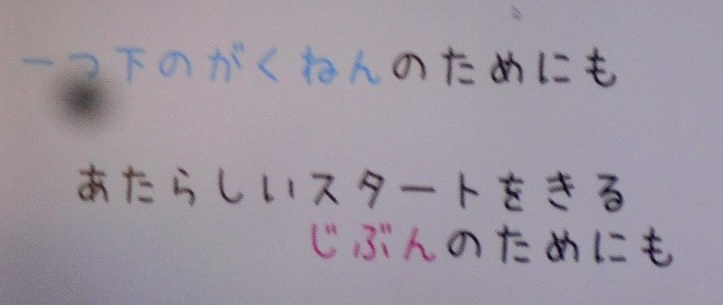 一つ下のがくねんのためにも
あたらしいスタートをきる
じぶんのためにも